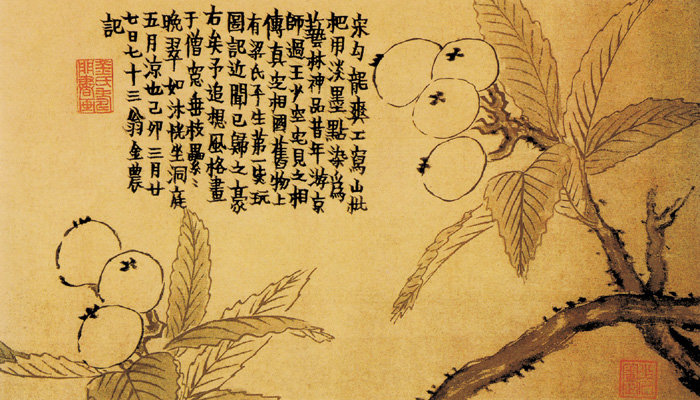 宋勾龍爽工寫山枇
杷用淡墨點染為
藝林神品昔年游京
師過王少空宅見之相
傳真定相國舊物上
有梁氏平生第一玩
圖記近聞已歸之豪
右矣予追想風格畫
于僧窗垂枝纍〻
晚翠如沐恍坐洞庭
五月涼也己卯三月廿
七日七十三翁金農
記